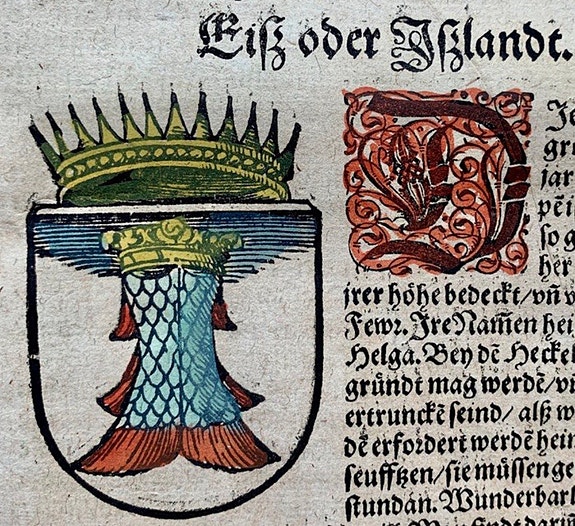 Eiß oder Jßlandt.
D Je
gro
jar
pēi
so g
her
jrer höhe bedeckt/ vñ v
Fewr. Jre Nam̃en hei
Helga. Bey dē Heckel
gründt mag werdē/ vn
ertrunckē seind/ alß w
dē erfordert werdē hein
seufftzen/ sie müssen ge
stundan. Wunderbarl